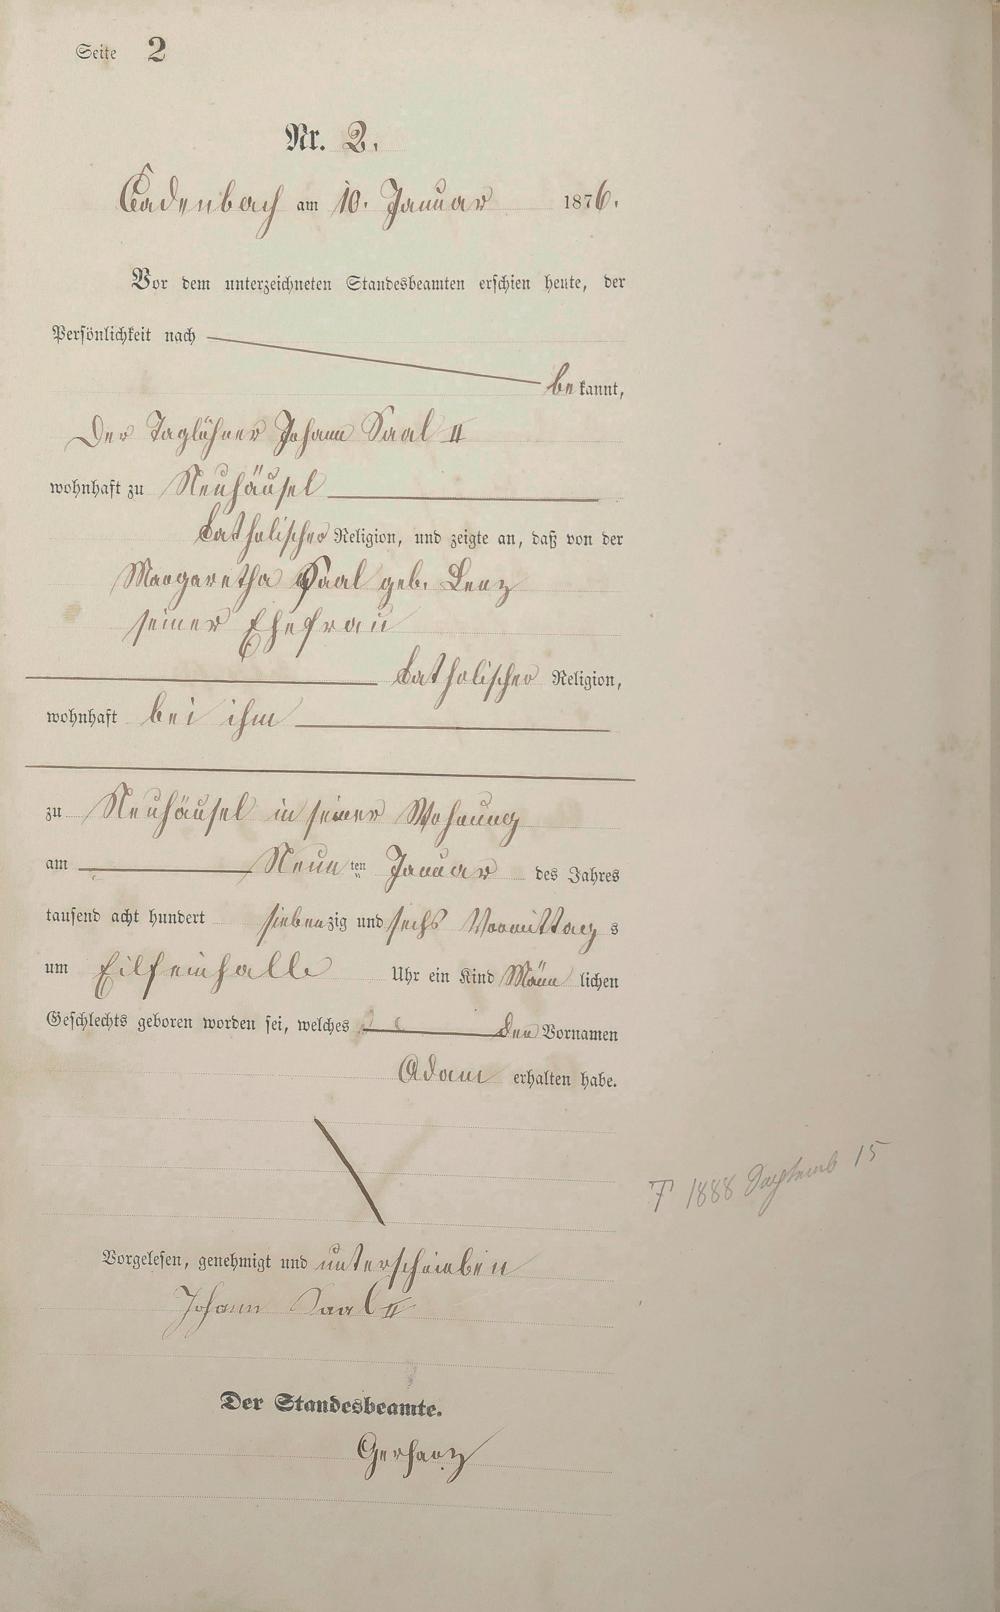 Seite 2
Nr. 2.
Cadenbach am 10. Januar 1876.
Vor dem unterzeichneten Standesbeamten erschien heute, der
Persönlichkeit nach
bekannt,
Der Taglöhner Johann Saal II
wohnhaft zu Neuhäusel
katholischer Religion, und zeigte an, daß von der
Margaretha Saal geb. Lenz
seiner Ehefrau
katholischer Religion,
wohnhaft bei ihm
zu Neuhäusel in seiner Wohnung
am Neunten Januar des Jahres
tausend acht hundert siebenzig und sechs Vormittags
um Eilfeinhalb Uhr ein Kind Männlichen
Geschlechts geboren worden sei, welches den Vornamen
Adam erhalten habe.
† 1888 Septemb 15
Vorgelesen, genehmigt und unterschrieben
Johann Saal II
Der Standesbeamte.
Gerharz